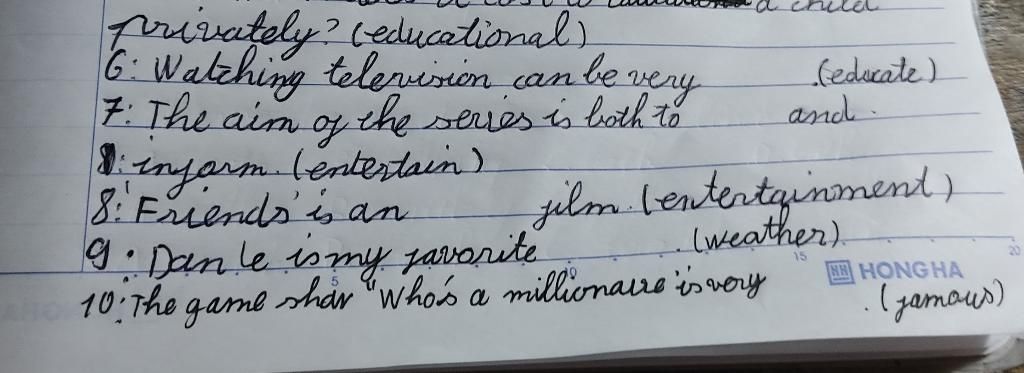 a child
privately? (educational)
6: Watching television can be very (educate)
7: The aim of the series is both to and
inform. (entertain)
8: 'Friends' is an film. (entertainment)
9: Dan Le is my favorite . (weather).
15 20
5 10 HH HONG HA
10: The game show "Who's a millionaire" is very . (famous)